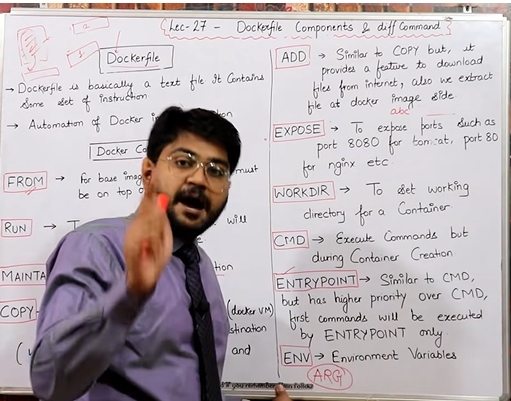 Lec-27 - Dockerfile Components & diff Command
Dockerfile
→ Dockerfile is basically a text file it contains
some set of instruction
→ Automation of Docker
Docker
FROM → For base must
be on top
RUN → will
MAINTA
COPY (docker VM)
and
ADD → Similar to COPY but, it
provides a feature to download
files from internet, also we extract
file at docker image side
abc
EXPOSE → To expose ports such as
port 8080 for tomcat, port 80
for nginx etc.
WORKDIR → To set working
directory for a Container
CMD → Execute Commands but
during Container Creation
ENTRYPOINT → Similar to CMD,
but has higher priority over CMD,
first commands will be executed
by ENTRYPOINT only
ENV → Environment Variables
ARG
if you remember